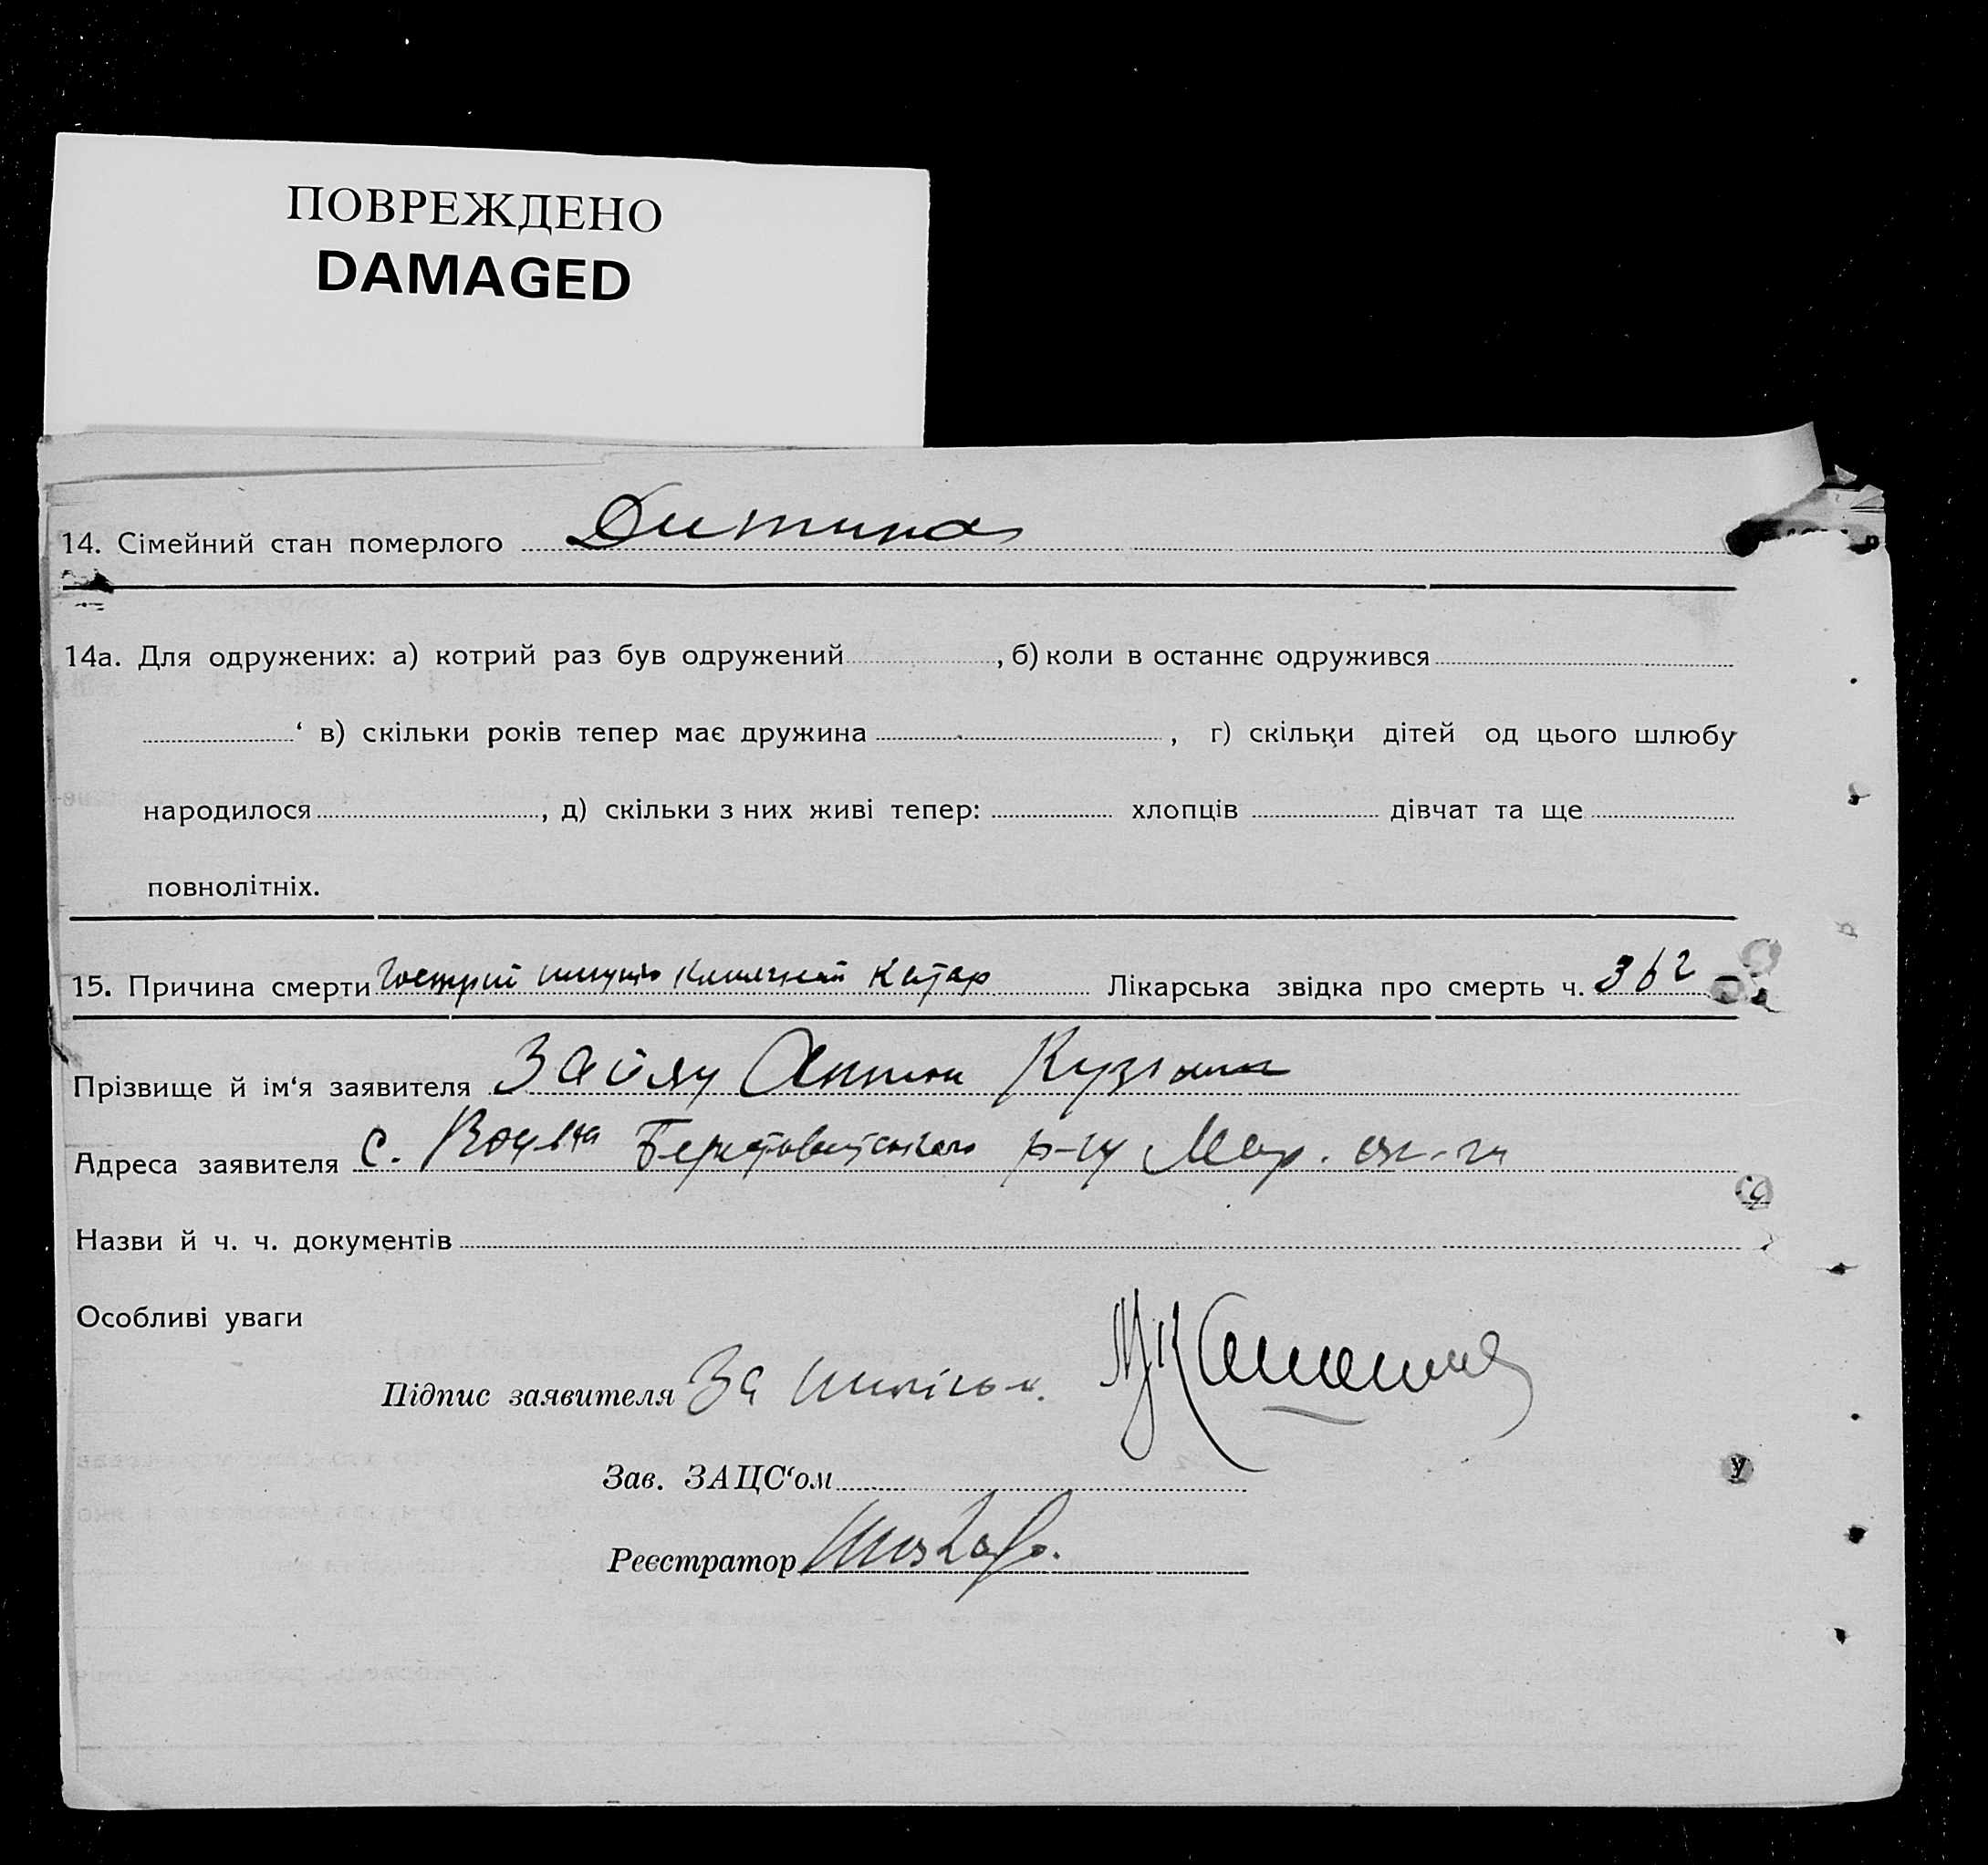 ПОВРЕЖДЕНО
DAMAGED
14. Сімейний стан померлого Дитина
14а. Для одружених: а) котрий раз був одружений , б) коли в останнє одружився
‘ в) скільки років тепер має дружина , г) скільки дітей од цього шлюбу
народилося , д) скільки з них живі тепер: хлопців дівчат та ще
повнолітніх.
15. Причина смерти Гострий кишечний катар Лікарська звідка про смерть ч. 362
Прізвище й ім‘я заявителя Антон
Адреса заявителя с. р-ну Мар. ок-ги
Назви й ч. ч. документів
Особливі уваги
Підпис заявителя За
Зав. ЗАЦС‘ом
Реєстратор
у